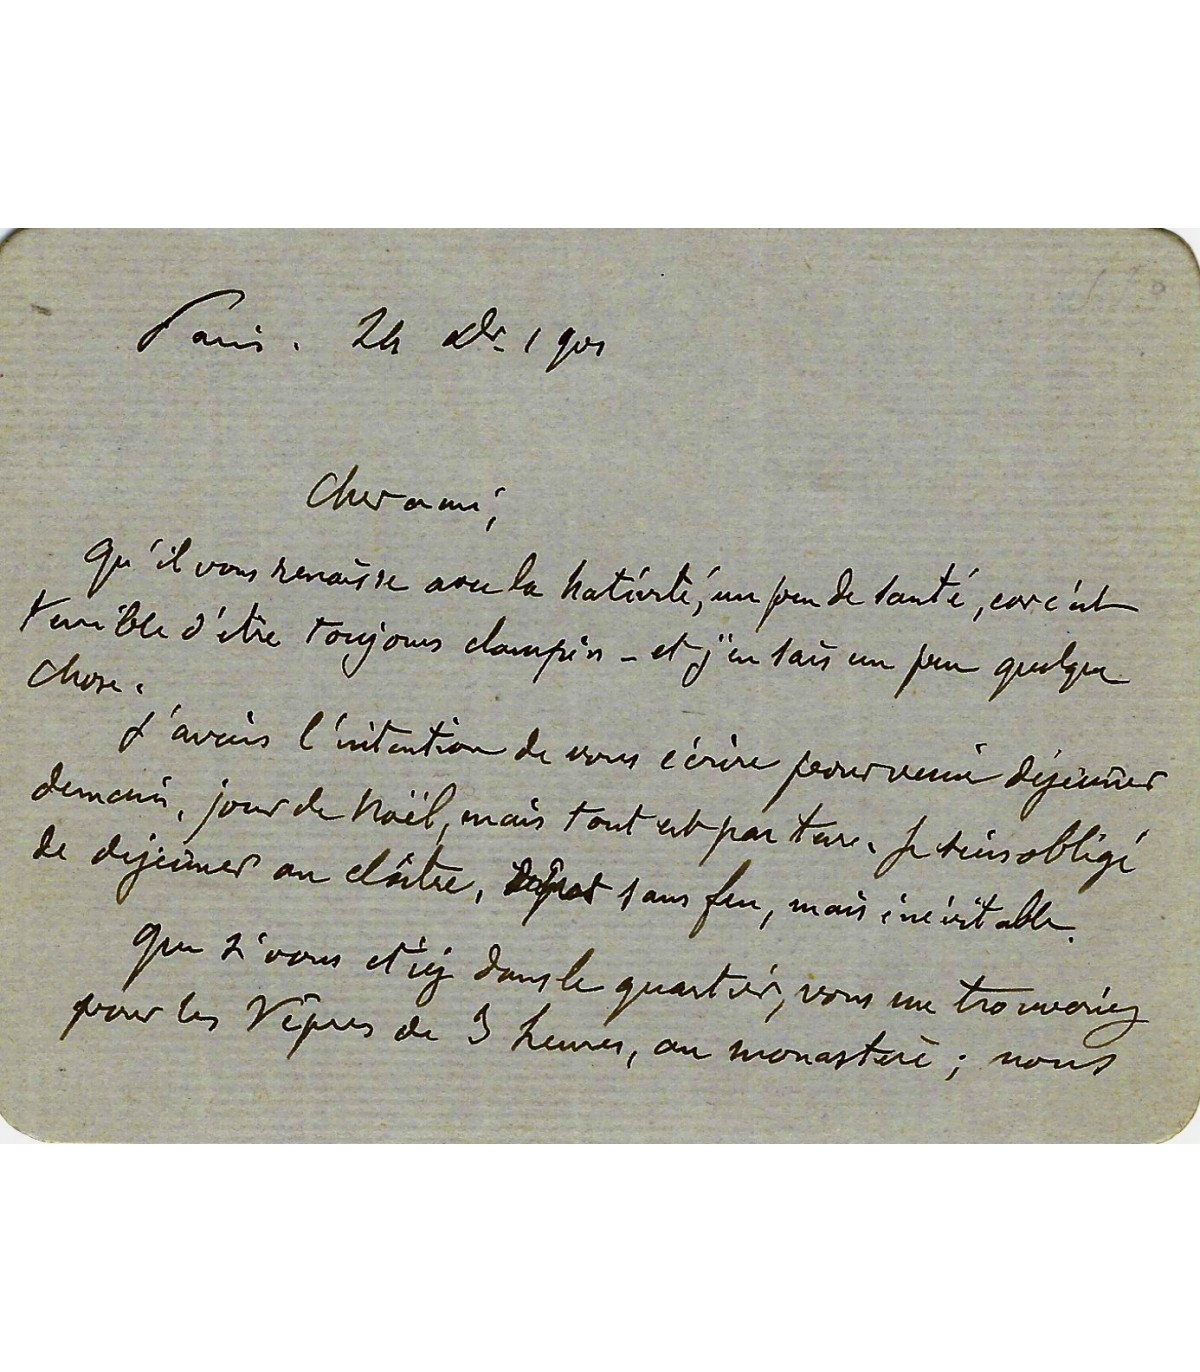 Paris. 24 Xbr. 1901
Cher ami,
Qu'il vous renaisse avec la Nativité, un peu de santé, car c'est
terrible d'être toujours clampin – et j'en sais un peu quelque
chose.
J'avais l'intention de vous écrire pour venir déjeuner
demain, jour de Noël, mais tout est par terre. Je suis obligé
de déjeuner au cloître, sans feu, mais inévitable.
Que si vous étiez dans le quartier, vous me trouveriez
pour les Vêpres de 3 heures, au monastère ; nous